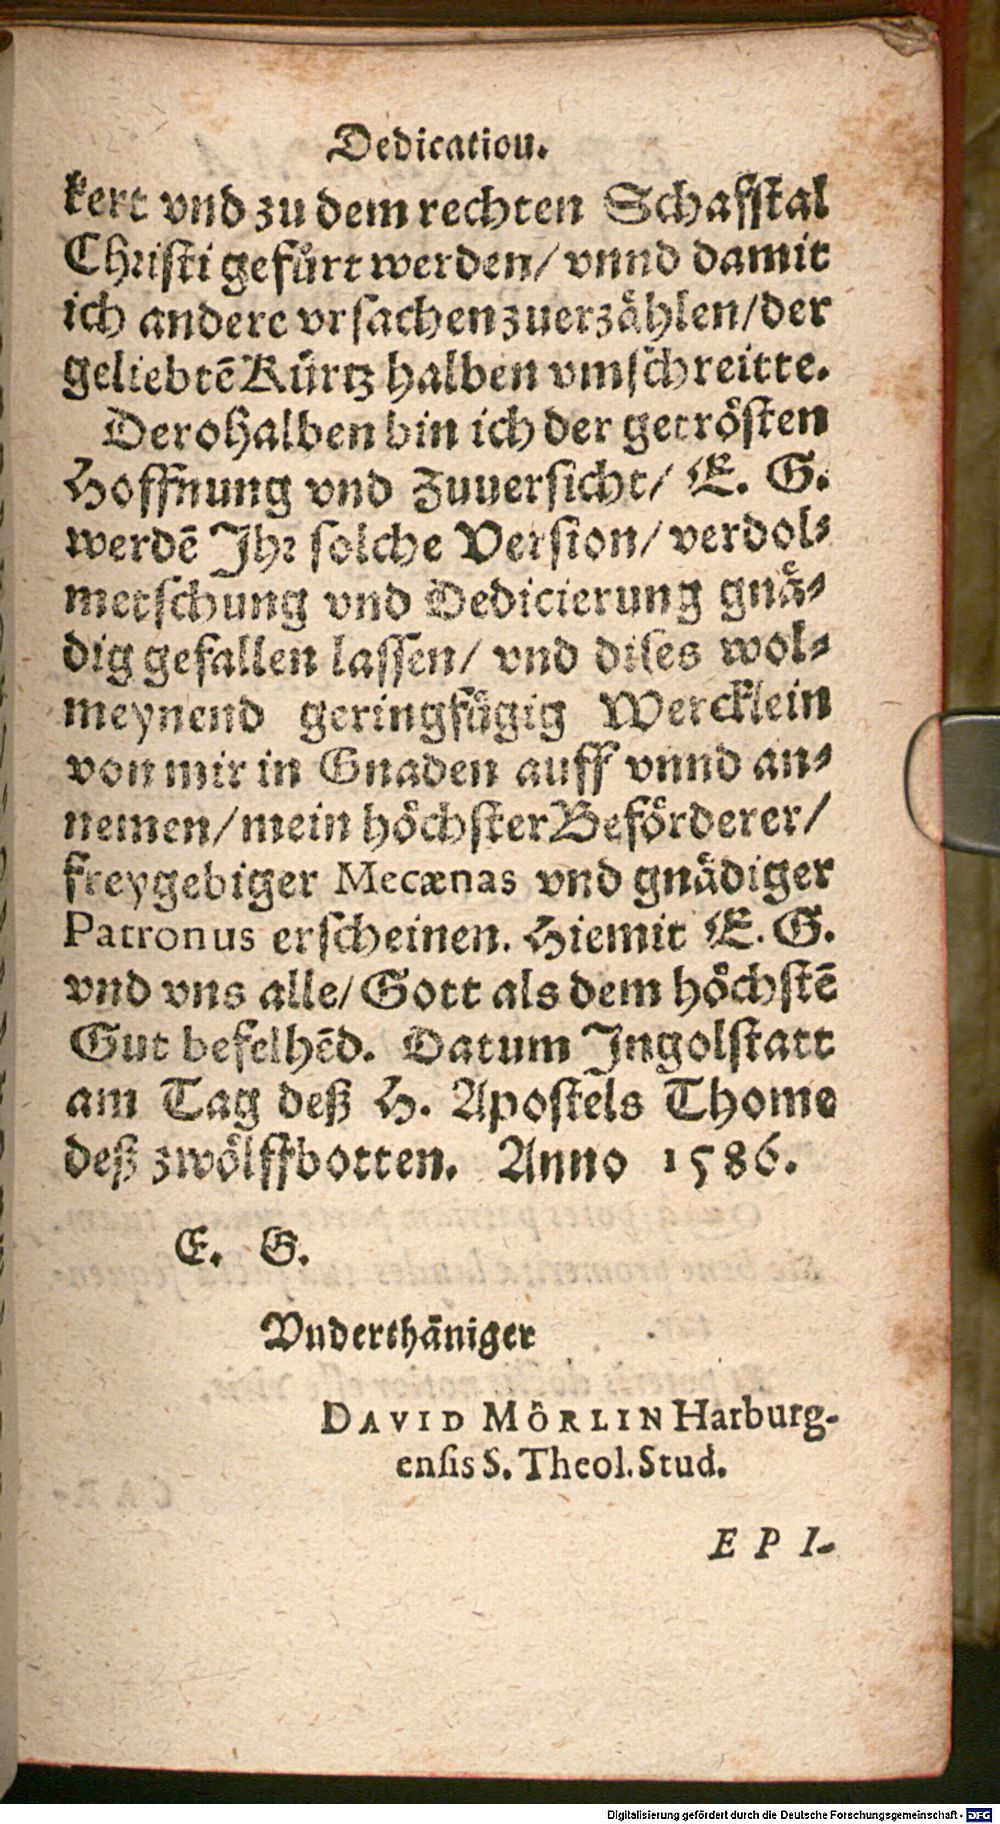 Dedication.
kert vnd zu dem rechten Schafstal
Christi gefürt werden/ vnnd damit
ich andere vrsachen zuerzählen/der
geliebtē Kürtz halben vmschreitte.
Derohalben bin ich der getrösten
Hoffnung vnd Zuuersicht/ E. G.
werdē Jhr solche Version/ verdol-
metschung vnd Dedicierung gnä-
dig gefallen lassen/ vnd dises wol-
meynend geringfügig Wercklein
von mir in Gnaden auff vnnd an-
nemen/mein höchster Beförderer/
freygebiger Mecænas vnd gnädiger
Patronus erscheinen. Hiemit E. G.
vnd vns alle/Gott als dem höchstē
Gut befelhēd. Datum Jngolstatt
am Tag deß H. Apostels Thome
deß zwölffbotten. Anno 1586.
E. G.
Vnderthäniger
DAVID MÖRLIN Harburg-
ensis S. Theol. Stud.
EPI-
Digitalisierung gefördert durch die Deutsche Forschungsgemeinschaft - DFG